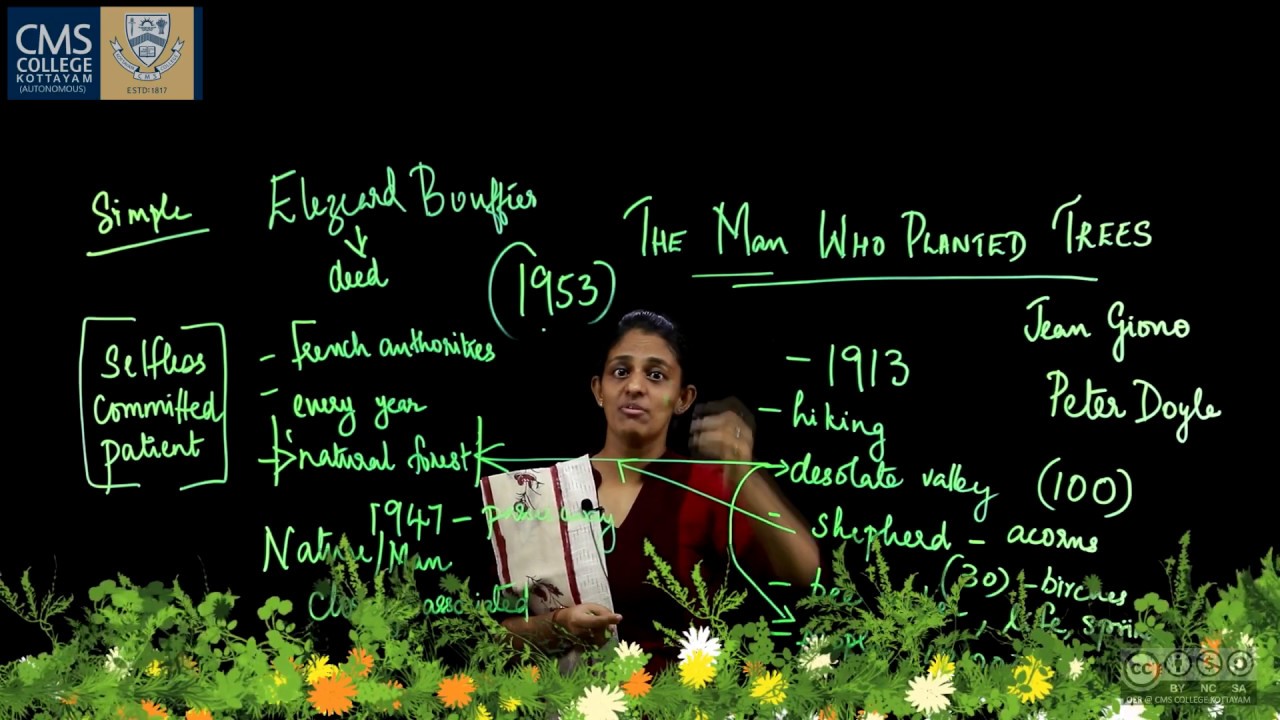 CMS
COLLEGE
KOTTAYAM
(AUTONOMOUS)
ESTD:1817
Simple
Elezeard Bouffier
deed
(1953)
THE MAN WHO PLANTED TREES
Jean Giono
Peter Doyle
(100)
Selfless
committed
patient
- French authorities
- every year
natural forest
1947 -
Nature/Man
- 1913
- hiking
desolate valley
- shepherd - acorns
(30) - birches
, life,
CC BY NC SA
OER @ CMS COLLEGE KOTTAYAM